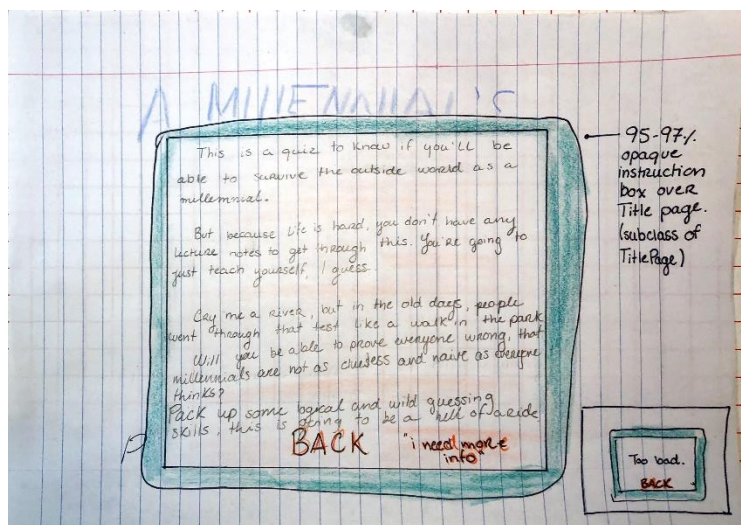 A MILLENNIAL'S
This is a quiz to know if you'll be
able to survive the outside world as a
millennial.
But because life is hard, you don't have any
lecture notes to get through this. You're going to
just teach yourself, I guess.
Cry me a river, but in the old days, people
went through that test like a walk in the park
Will you be able to prove everyone wrong, that
millennials are not as clueless and naive as everyone
thinks?
Pack up some logical and wild guessing
skills, this is going to be a hell of a ride
BACK
"i need more
info"
95-97%
opaque
instruction
box over
Title page.
(subclass of
TitlePage)
Too bad.
BACK